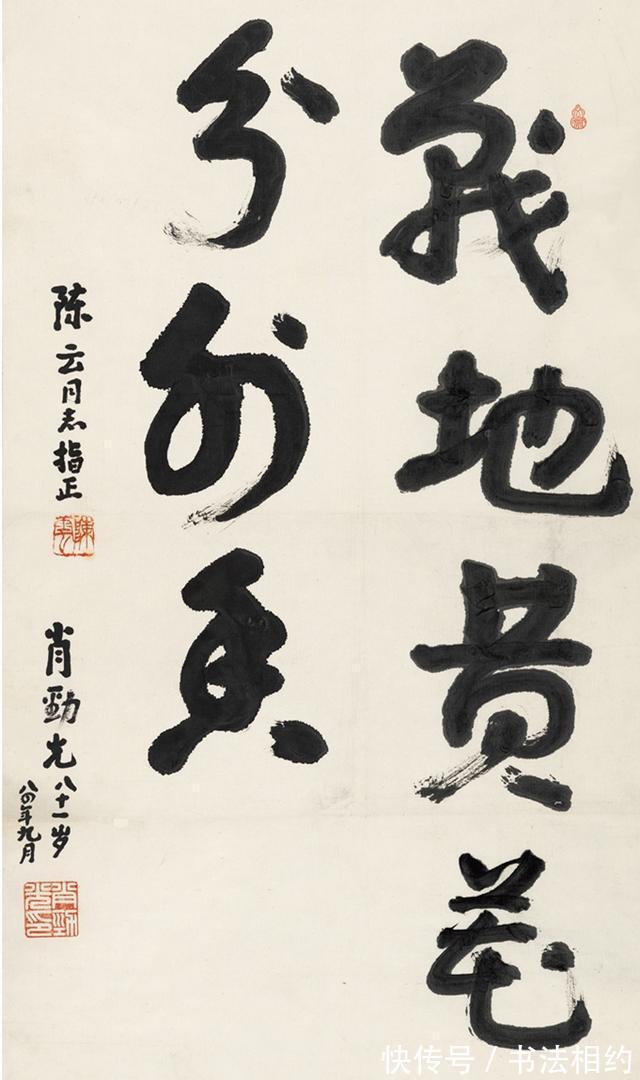 战地黄花
分外香
陈云同志指正
肖劲光八十一岁
八四年九月
快传号 / 书法相约